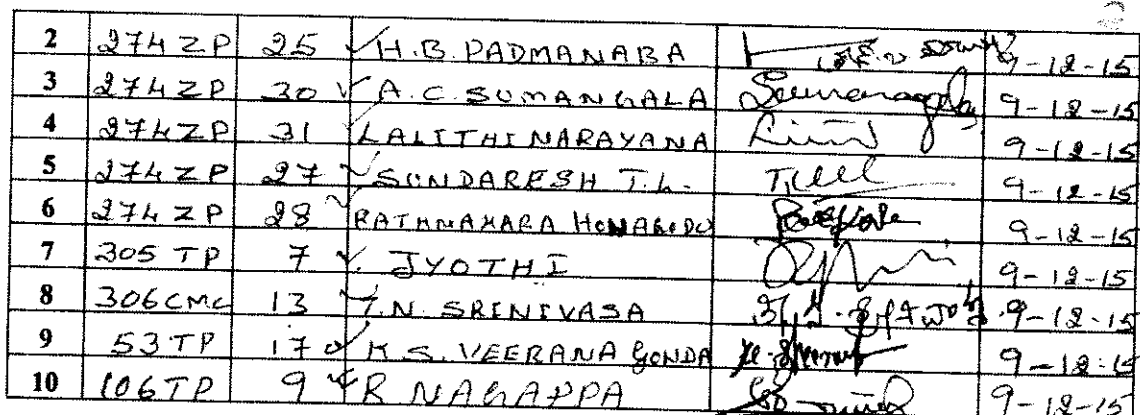 2 274 ZP 25 H.B. PADMANABA 9-12-15
3 274 ZP 30 A.C. SUMANGALA Sumangala 9-12-15
4 274 ZP 31 LALITHI NARAYANA 9-12-15
5 274 ZP 27 SUNDARESH T.L. 9-12-15
6 274 ZP 28 RATHNAKARA HONAGODU 9-12-15
7 305 TP 7 JYOTHI 9-12-15
8 306 CMC 13 T.N. SRINIVASA 9-12-15
9 53 TP 17 K S. VEERANA GONDA 9-12-15
10 106 TP 9 R NAGAPPA 9-12-15